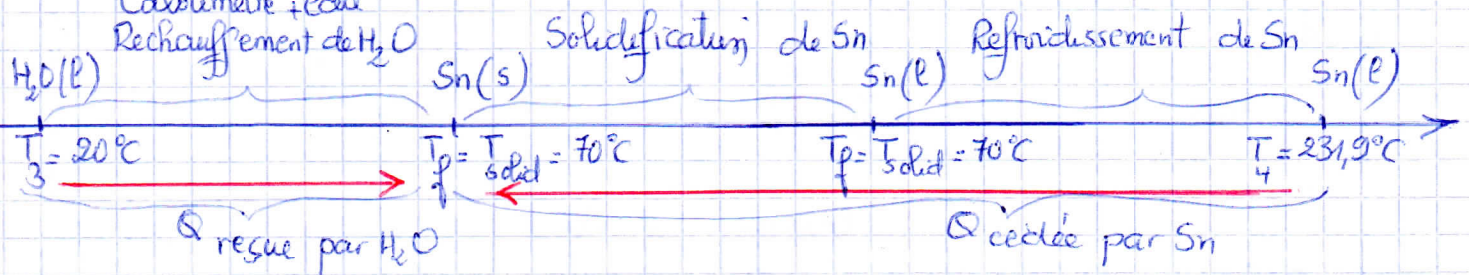 Calorimètre + eau
Rechauffement de H₂O Solidification de Sn Refroidissement de Sn
H₂O(l) Sn(s) Sn(l) Sn(l)
T₃ = 20°C Tf = Tsolid = 70°C Tf = Tsolid = 70°C T₄ = 231,9°C
Q reçue par H₂O Q cédée par Sn